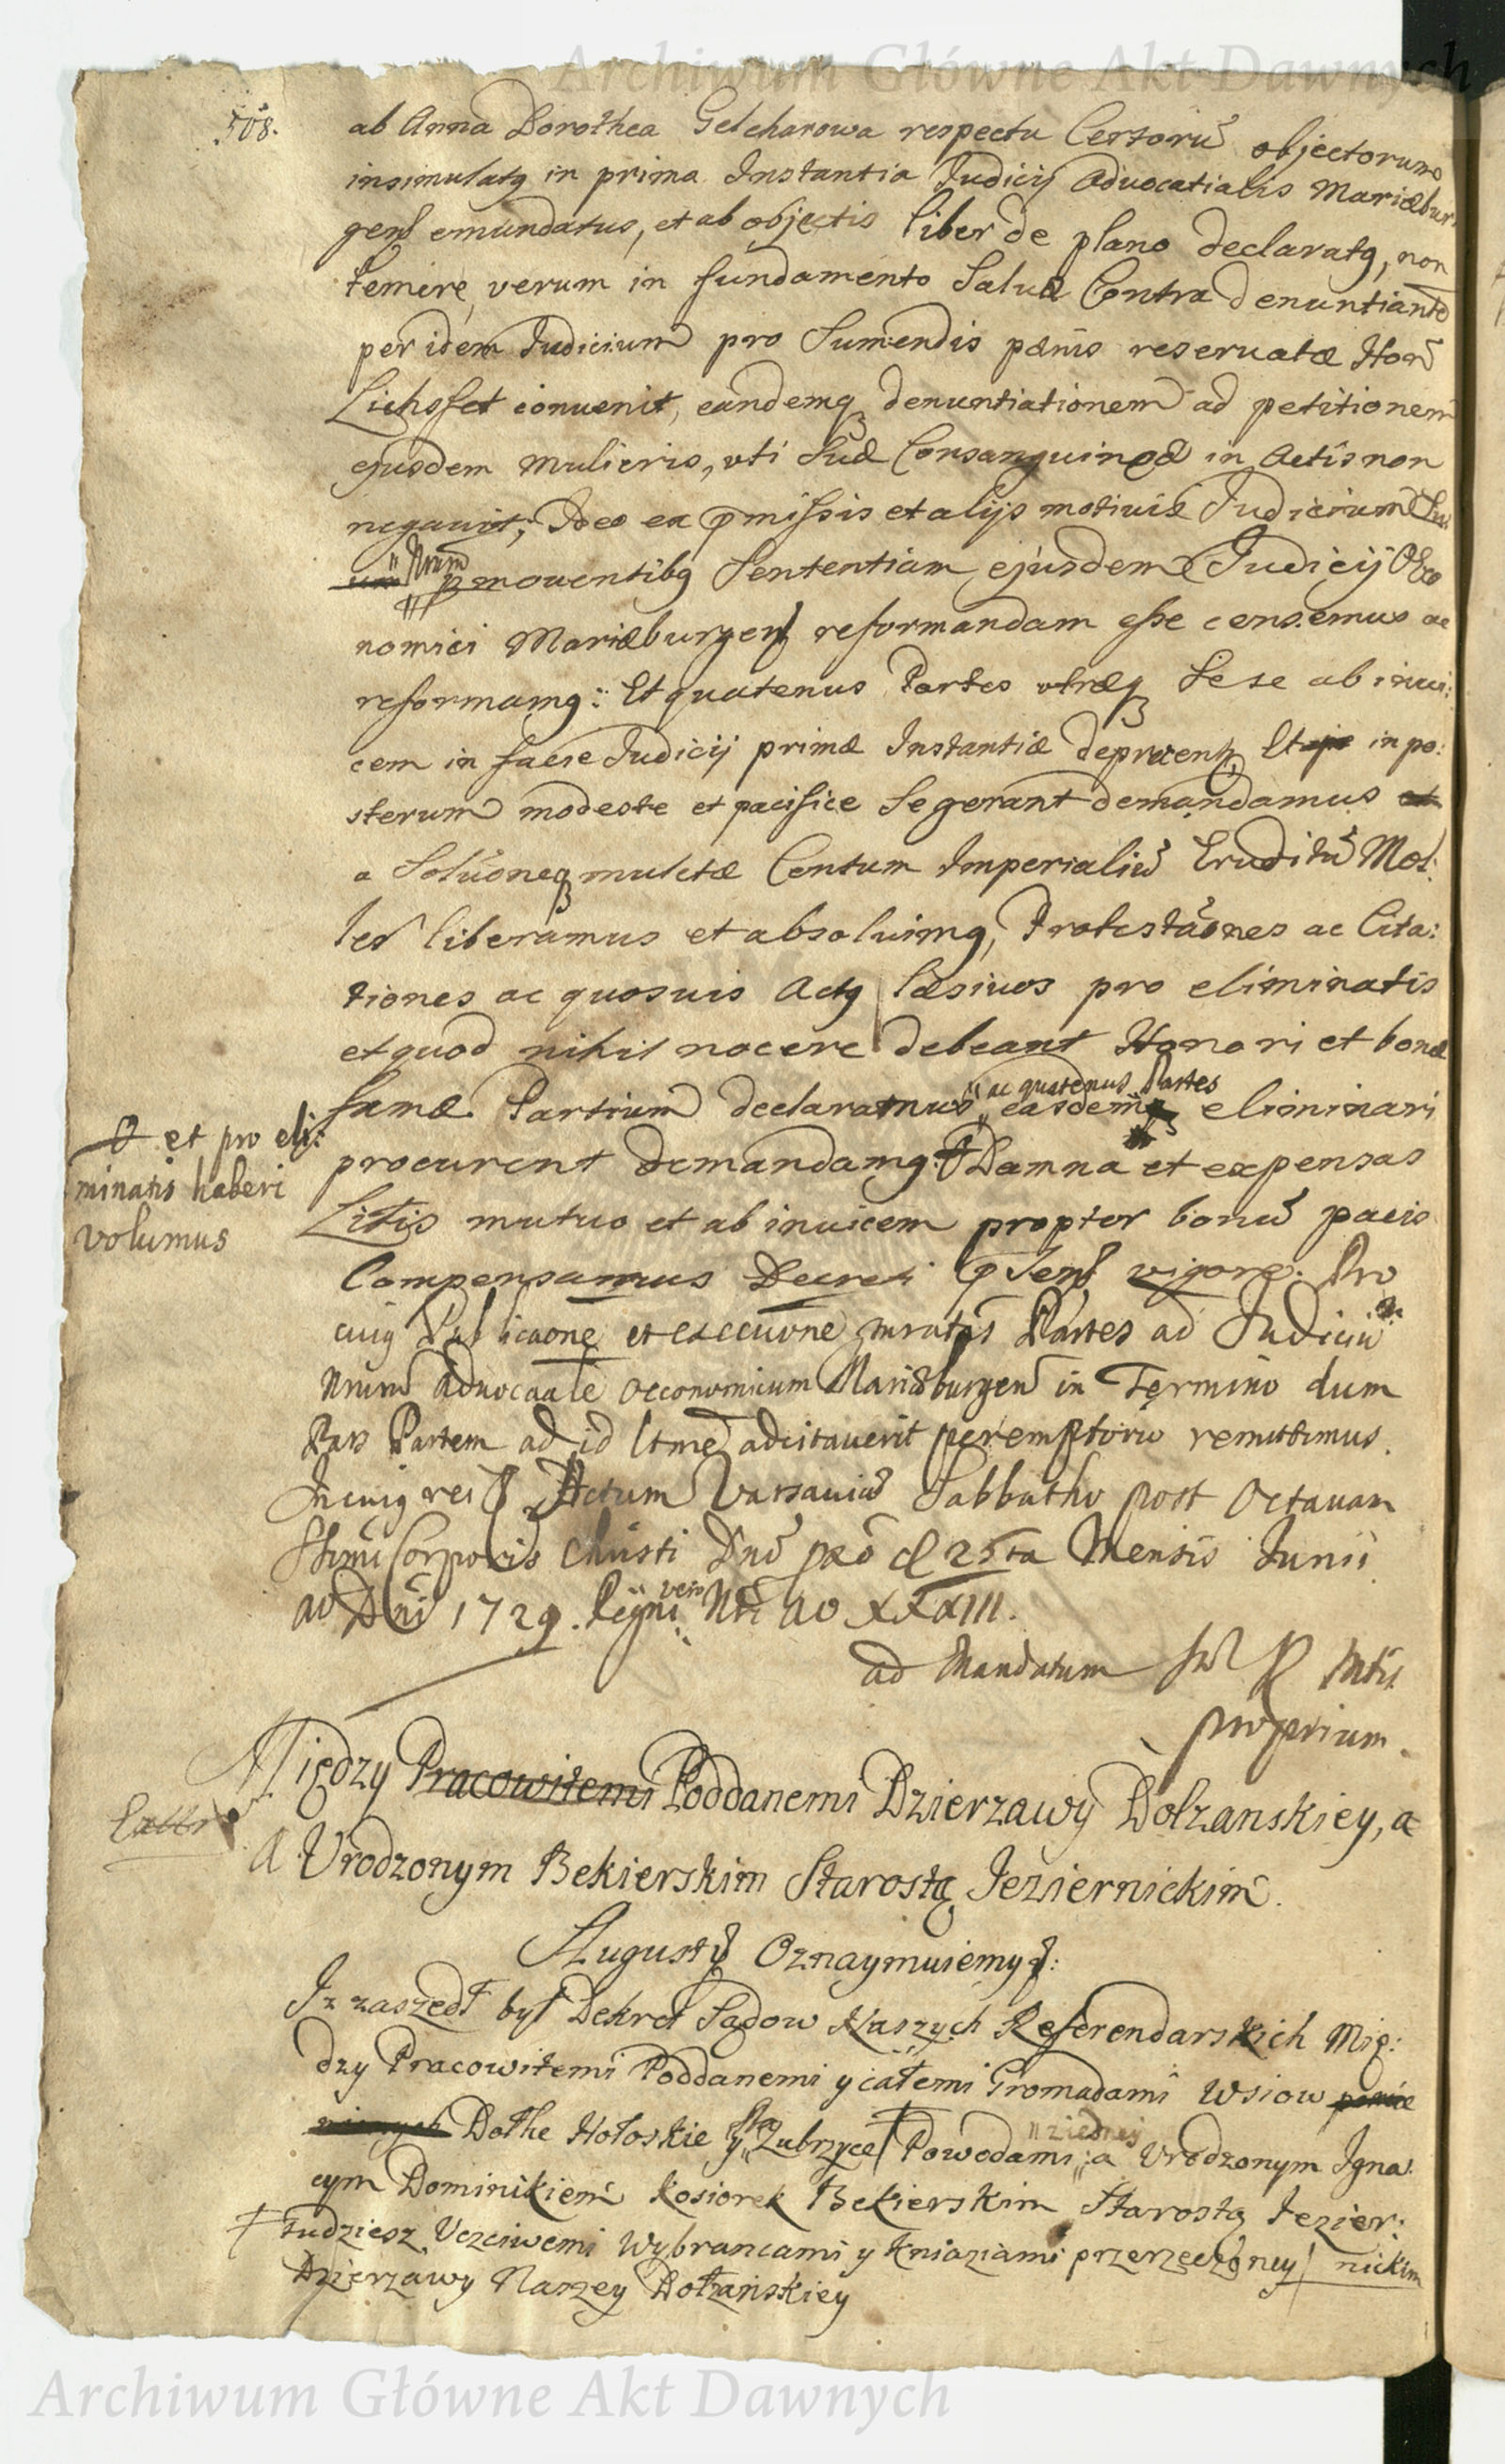 Archiwum Główne Akt Dawnych
508.
ab Anna Dorothea Gelcharowa respectu Certorū objectorum
insimulatq in prima Instantia Judicij Advocatialis Mariæbur:
gens emundatus, et ab objectis liber de plano declaratq, non
temere verum in fundamento Salvæ Contra denuntiantē
per idem Judicium pro Sumendis pænis reservatæ
convenit, eandemq denuntiationem ad petitionem
ejusdem mulieris, uti Suæ Consanguineæ in Actis non
negavit; Ideo ex pmissis et alijs motivis Judicium
Nrum moventibq Sententiam ejusdem Judicij Oeco
nomici Mariæburgens reformandam esse censemus ac
reformamq: Et quatenus Partes utræq Sese ab invi:
cem in facie Judicij primæ Instantiæ deprecentr Et in po:
sterum modeste et pacifice Se gerant demandamus
a Soluoneq mulctæ Centum Imperialiū Eruditū Mol:
ler liberamus et absoluimq, Protestaōnes ac Cita:
tiones ac quosvis Actq læsivos pro eliminatis
et quod nihil nocere debeant Honori et bonæ
famæ Partium declaramus, " ac quatenus Partes easdem eliminari
procurent demandamq. Damna et expensas
et pro eli:
minatis haberi
volumus
Litis mutuo et ab invicem propter bonū pacis
Compensamus Decreti pSens vigore. Pro
cuiq Publicaone et execuone Partes ad Judiciū
Nrum Advocaale Oeconomicum Mariæburgen in Termino dum
Pars Partem ad id ltme adcitaverit peremptorio remittimus.
In cuiq rei Actum Varsaviæ Sabbatho post Octavam
Corporis Christi 25ta Mensis Junii
ao Dni 1729. Regni vero Nri ao XXXIII.
ad Mandatum S R Mtis
proprium.
Między Pracowitemi Poddanemi Dzierzawy Dolzanskiey, a
A Vrodzonym Bekierskim Starostą Jeziernickim.
August Oznaymuiemy:
Iz zaszedł był Dekret Sądow Naszych Referendarskich Mię:
dzy Pracowitemi Poddanemi y całemi Gromadami Wsiow
Dołhe Hołoskie y Zubrzyce Powodami "z iedney a Vrodzonym Igna:
cym Dominikiem Kosiorek Bekierskim Starostą Jezier:
nickim
Tudziesz Uczciwemi Wybrancami y Kniaziami przerzeczoney
Dzierzawy Naszey Dołzańskiey
Archiwum Główne Akt Dawnych